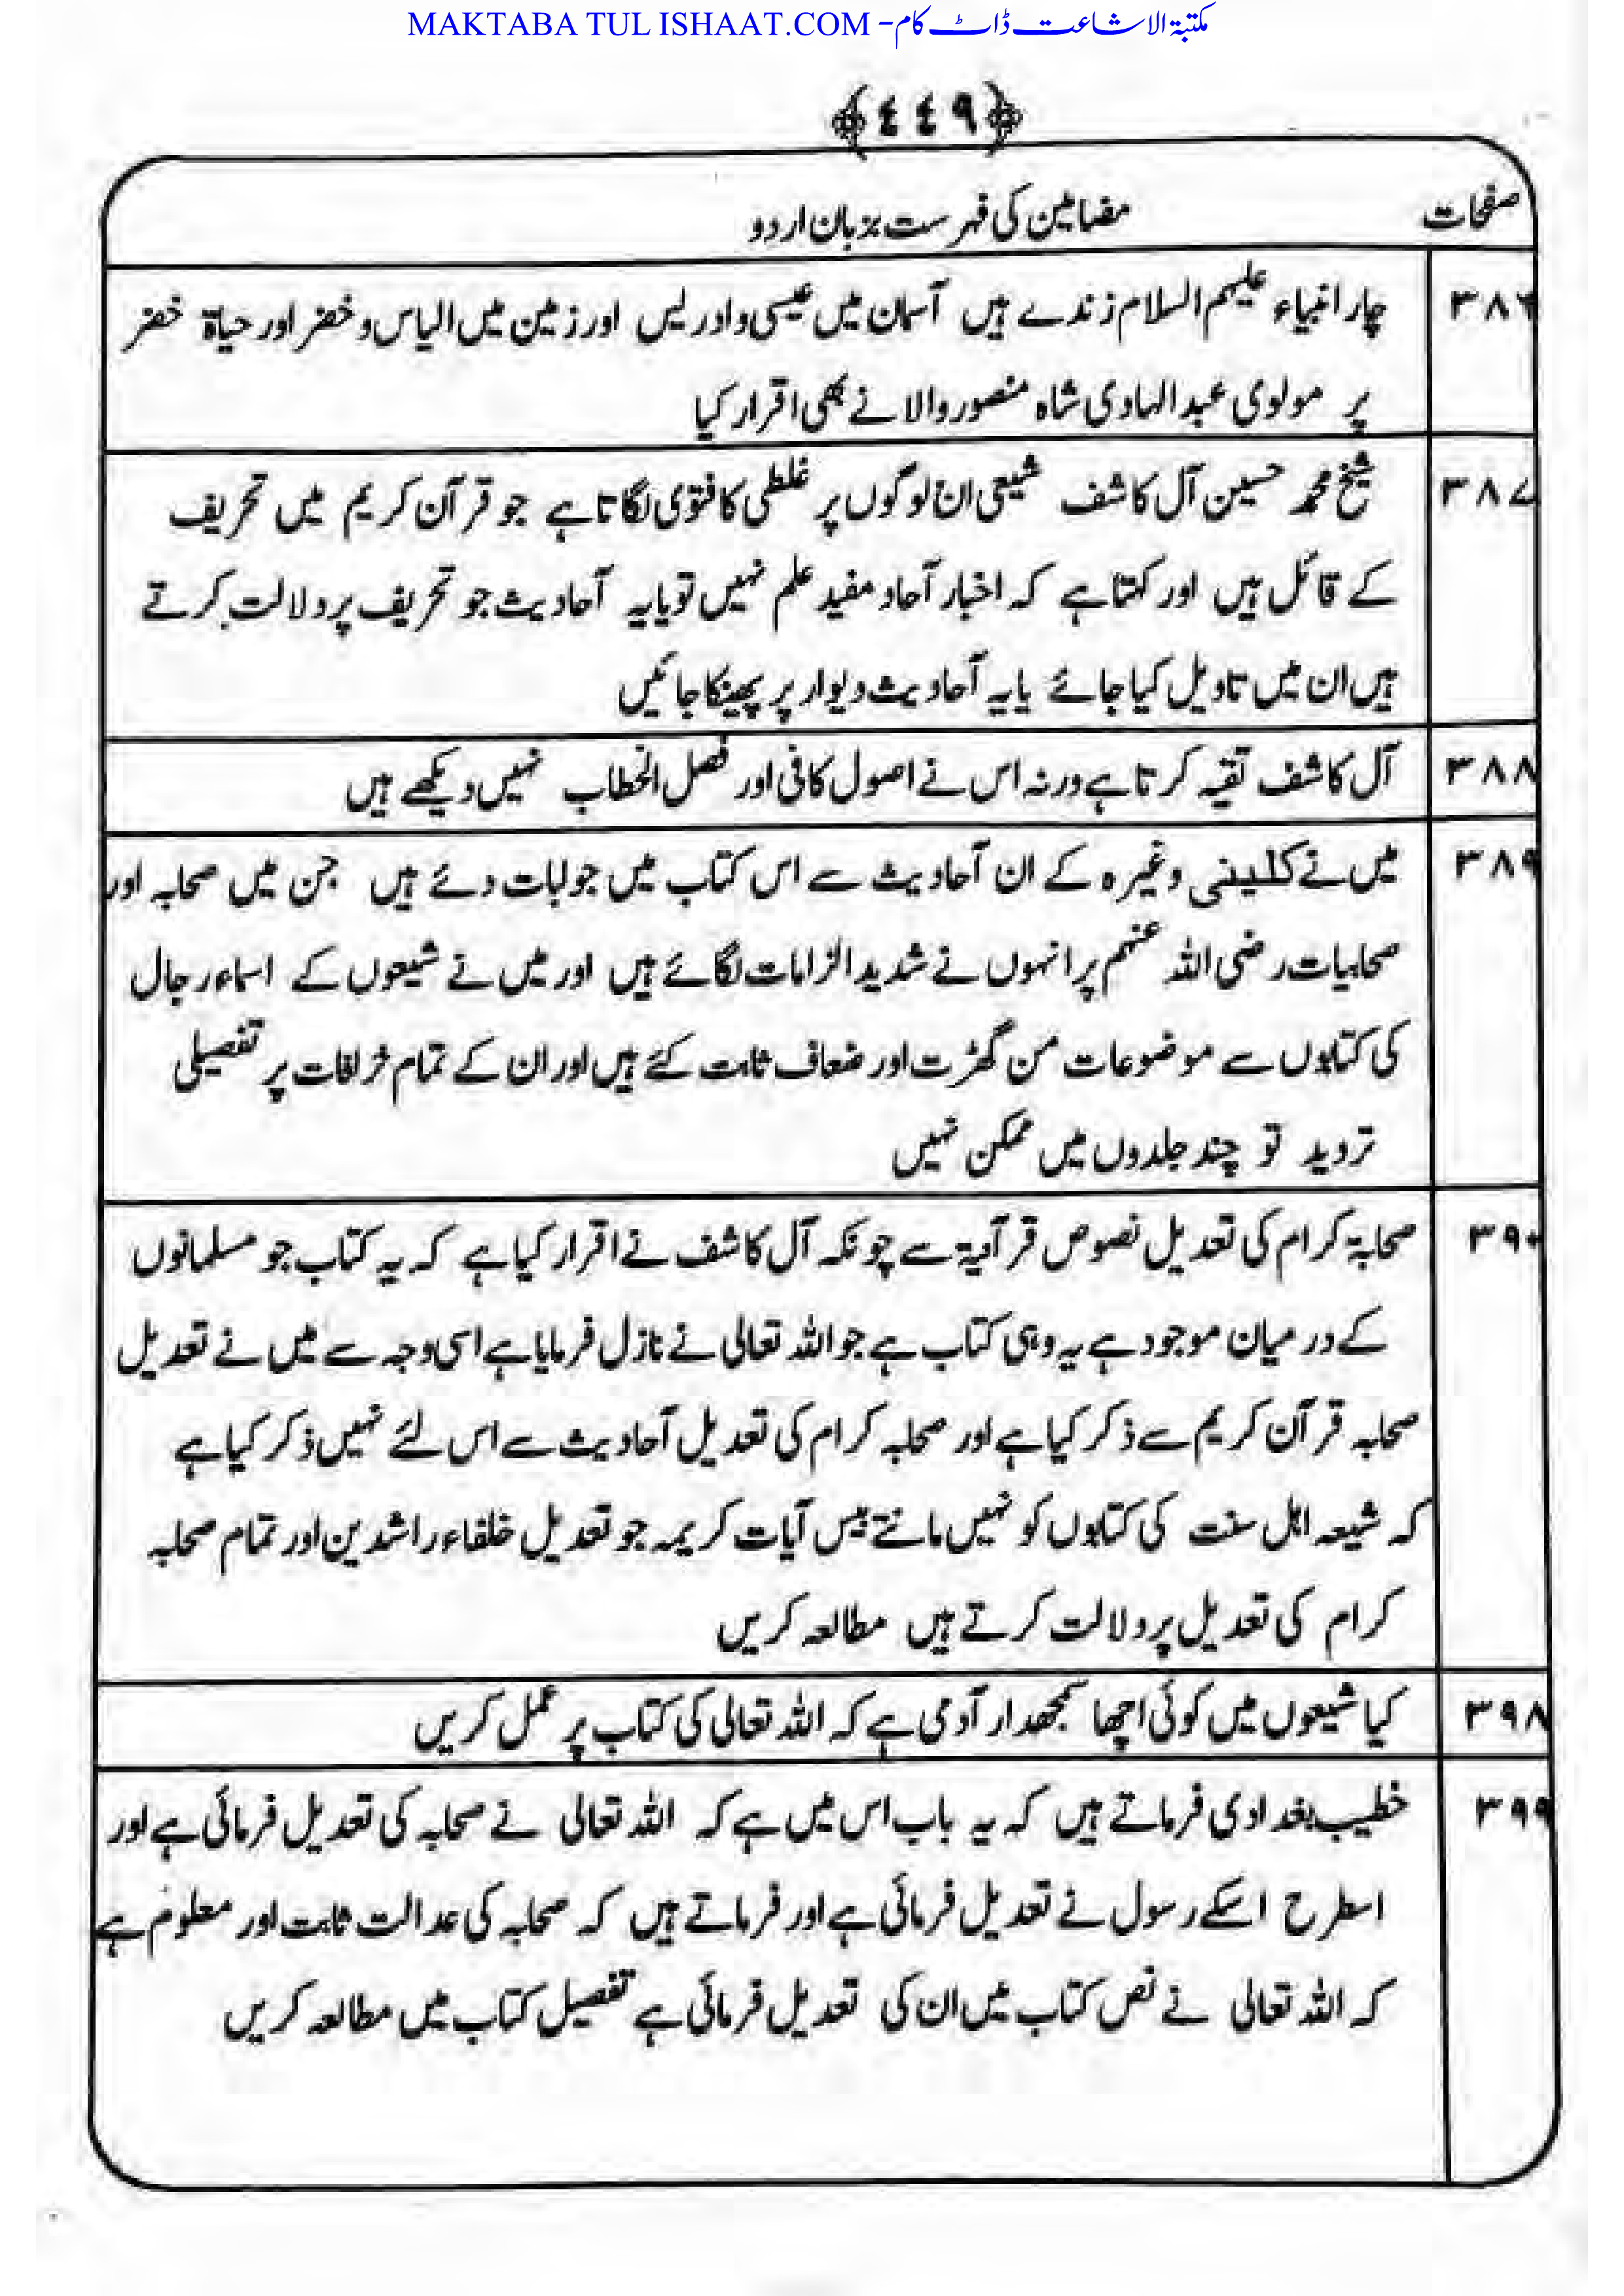 MAKTABA TUL ISHAAT.COM - مکتبۃ الاشاعت ڈاٹ کام
﴿٤٤٩﴾
صفحات مضامین کی فہرست بزبان اردو
٣٨٦ چار انبیاء علیہم السلام زندے ہیں آسمان میں عیسی و ادریس اور زمین میں الیاس و خضر اور حیاۃ خضر
پر مولوی عبد الہادی شاہ منصور والا نے بھی اقرار کیا
٣٨٧ شیخ محمد حسین آل کاشف شیعی ان لوگوں پر غلطی کا فتوی لگاتا ہے جو قرآن کریم میں تحریف
کے قائل ہیں اور کہتا ہے کہ اخبار آحاد مفید علم نہیں تو یا یہ آحادیث جو تحریف پر دلالت کرتے
ہیں ان میں تاویل کیا جائے یا یہ آحادیث دیوار پر پھینکا جائیں
٣٨٨ آل کاشف تقیہ کرتا ہے ورنہ اس نے اصول کافی اور فصل الخطاب نہیں دیکھے ہیں
٣٨٩ میں نے کلینی وغیرہ کے ان آحادیث سے اس کتاب میں جوابات دئے ہیں جن میں صحابہ اور
صحابیات رضی اللہ عنہم پر انہوں نے شدید الزامات لگائے ہیں اور میں نے شیعوں کے اسماء رجال
کی کتابوں سے موضوعات من گھڑت اور ضعاف ثابت کئے ہیں اور ان کے تمام خرافات پر تفصیلی
تردید تو چند جلدوں میں ممکن نہیں
٣٩٠ صحابۃ کرام کی تعدیل نصوص قرآنیۃ سے چونکہ آل کاشف نے اقرار کیا ہے کہ یہ کتاب جو مسلمانوں
کے درمیان موجود ہے یہ وہی کتاب ہے جو اللہ تعالی نے نازل فرمایا ہے اسی وجہ سے میں نے تعدیل
صحابہ قرآن کریم سے ذکر کیا ہے اور صحابہ کرام کی تعدیل آحادیث سے اس لئے نہیں ذکر کیا ہے
کہ شیعہ اہل سنت کی کتابوں کو نہیں مانتے پس آیات کریمہ جو تعدیل خلفاء راشدین اور تمام صحابہ
کرام کی تعدیل پر دلالت کرتے ہیں مطالعہ کریں
٣٩٨ کیا شیعوں میں کوئی اچھا سمجھدار آدمی ہے کہ اللہ تعالی کی کتاب پر عمل کریں
٣٩٩ خطیب بغدادی فرماتے ہیں کہ یہ باب اس میں ہے کہ اللہ تعالی نے صحابہ کی تعدیل فرمائی ہے اور
اسطرح اسکے رسول نے تعدیل فرمائی ہے اور فرماتے ہیں کہ صحابہ کی عدالت ثابت اور معلوم ہے
کہ اللہ تعالی نے نص کتاب میں ان کی تعدیل فرمائی ہے تفصیل کتاب میں مطالعہ کریں